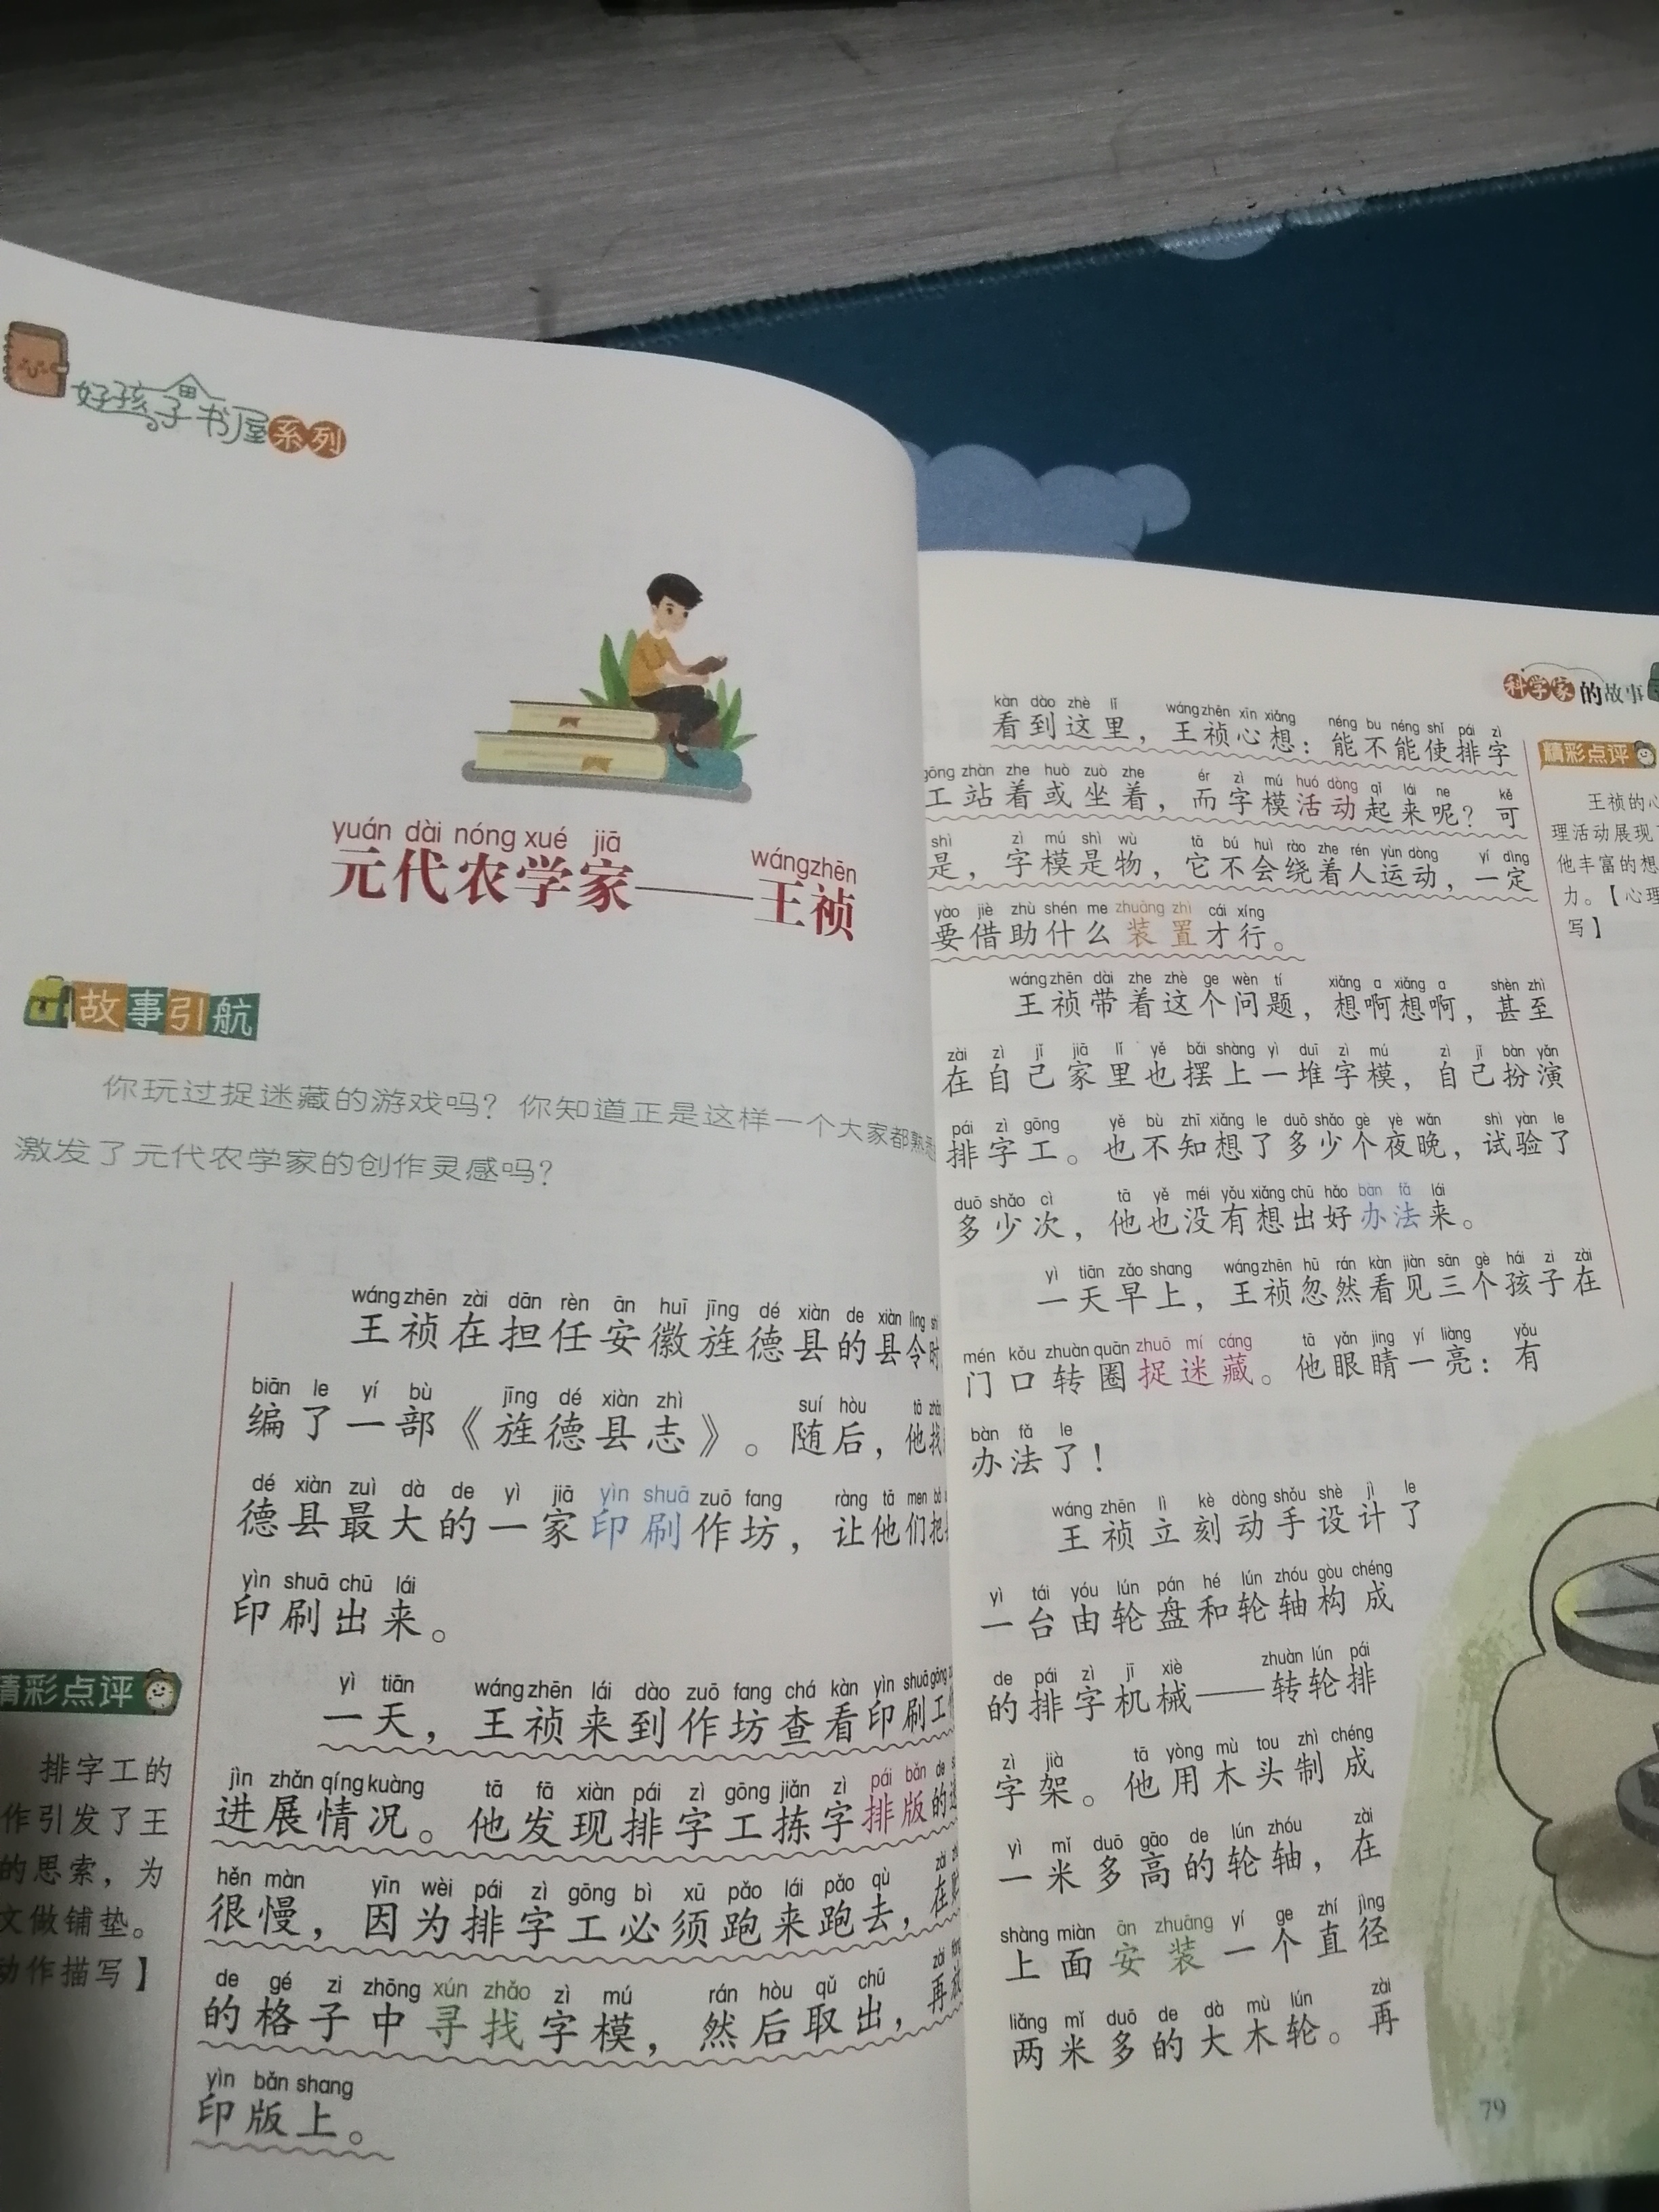 好孩子书屋系列
yuán dài nóng xué jiā wángzhēn
元代农学家——王祯
故事引航
你玩过捉迷藏的游戏吗？你知道正是这样一个大家都熟
激发了元代农学家的创作灵感吗？
wáng zhēn zài dān rèn ān huī jīng dé xiàn de xiàn lìng shí
王祯在担任安徽旌德县的县令时
biān le yí bù jīng dé xiàn zhì suí hòu tā zhǎo
编了一部《旌德县志》。随后，他找
dé xiàn zuì dà de yì jiā yìn shuā zuō fang ràng tā men bǎ
德县最大的一家印刷作坊，让他们把
yìn shuā chū lái
印刷出来。
yì tiān wáng zhēn lái dào zuō fang chá kàn yìn shuā gōng
一天，王祯来到作坊查看印刷工
jìn zhǎn qíng kuàng tā fā xiàn pái zì gōng jiǎn zì pái bǎn de
进展情况。他发现排字工拣字排版的
hěn màn yīn wèi pái zì gōng bì xū pǎo lái pǎo qù zài
很慢，因为排字工必须跑来跑去，在
de gé zi zhōng xún zhǎo zì mú rán hòu qǔ chū zài
的格子中寻找字模，然后取出，再
yìn bǎn shang
印版上。
精彩点评
排字工的
作引发了王
的思索，为
文做铺垫。
动作描写】
科学家的故事
kàn dào zhè lǐ wáng zhēn xīn xiǎng néng bu néng shǐ pái zì
看到这里，王祯心想：能不能使排字
gōng zhàn zhe huò zuò zhe ér zì mú huó dòng qǐ lái ne kě
工站着或坐着，而字模活动起来呢？可
shì zì mú shì wù tā bú huì rào zhe rén yùn dòng yí dìng
是，字模是物，它不会绕着人运动，一定
yào jiè zhù shén me zhuāng zhì cái xíng
要借助什么装置才行。
wáng zhēn dài zhe zhè ge wèn tí xiǎng a xiǎng a shèn zhì
王祯带着这个问题，想啊想啊，甚至
zài zì jǐ jiā lǐ yě bǎi shàng yì duī zì mú zì jǐ bàn yǎn
在自己家里也摆上一堆字模，自己扮演
pái zì gōng yě bù zhī xiǎng le duō shǎo gè yè wǎn shì yàn le
排字工。也不知想了多少个夜晚，试验了
duō shǎo cì tā yě méi yǒu xiǎng chū hǎo bàn fǎ lái
多少次，他也没有想出好办法来。
yì tiān zǎo shang wáng zhēn hū rán kàn jiàn sān gè hái zi zài
一天早上，王祯忽然看见三个孩子在
mén kǒu zhuàn quān zhuō mí cáng tā yǎn jing yí liàng yǒu
门口转圈捉迷藏。他眼睛一亮：有
bàn fǎ le
办法了！
wáng zhēn lì kè dòng shǒu shè jì le
王祯立刻动手设计了
yì tái yóu lún pán hé lún zhóu gòu chéng
一台由轮盘和轮轴构成
de pái zì jī xiè zhuàn lún pái
的排字机械——转轮排
zì jià tā yòng mù tou zhì chéng
字架。他用木头制成
yì mǐ duō gāo de lún zhóu zài
一米多高的轮轴，在
shàng miàn ān zhuāng yí ge zhí jìng
上面安装一个直径
liǎng mǐ duō de dà mù lún zài
两米多的大木轮。再
精彩点评
王祯的心
理活动展现
他丰富的想
力。【心理
写】
79